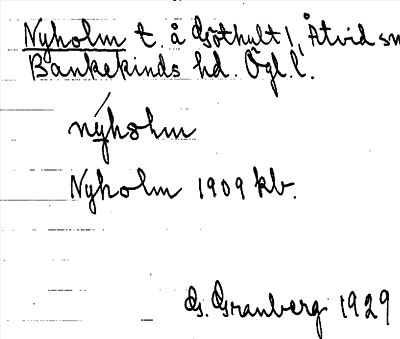 Nyholm t. å Göthult 1, Åtvid sn
Bankekinds hd. Ögl. l.
nýhολm
Nyholm 1909 kb.
G. Granberg 1929